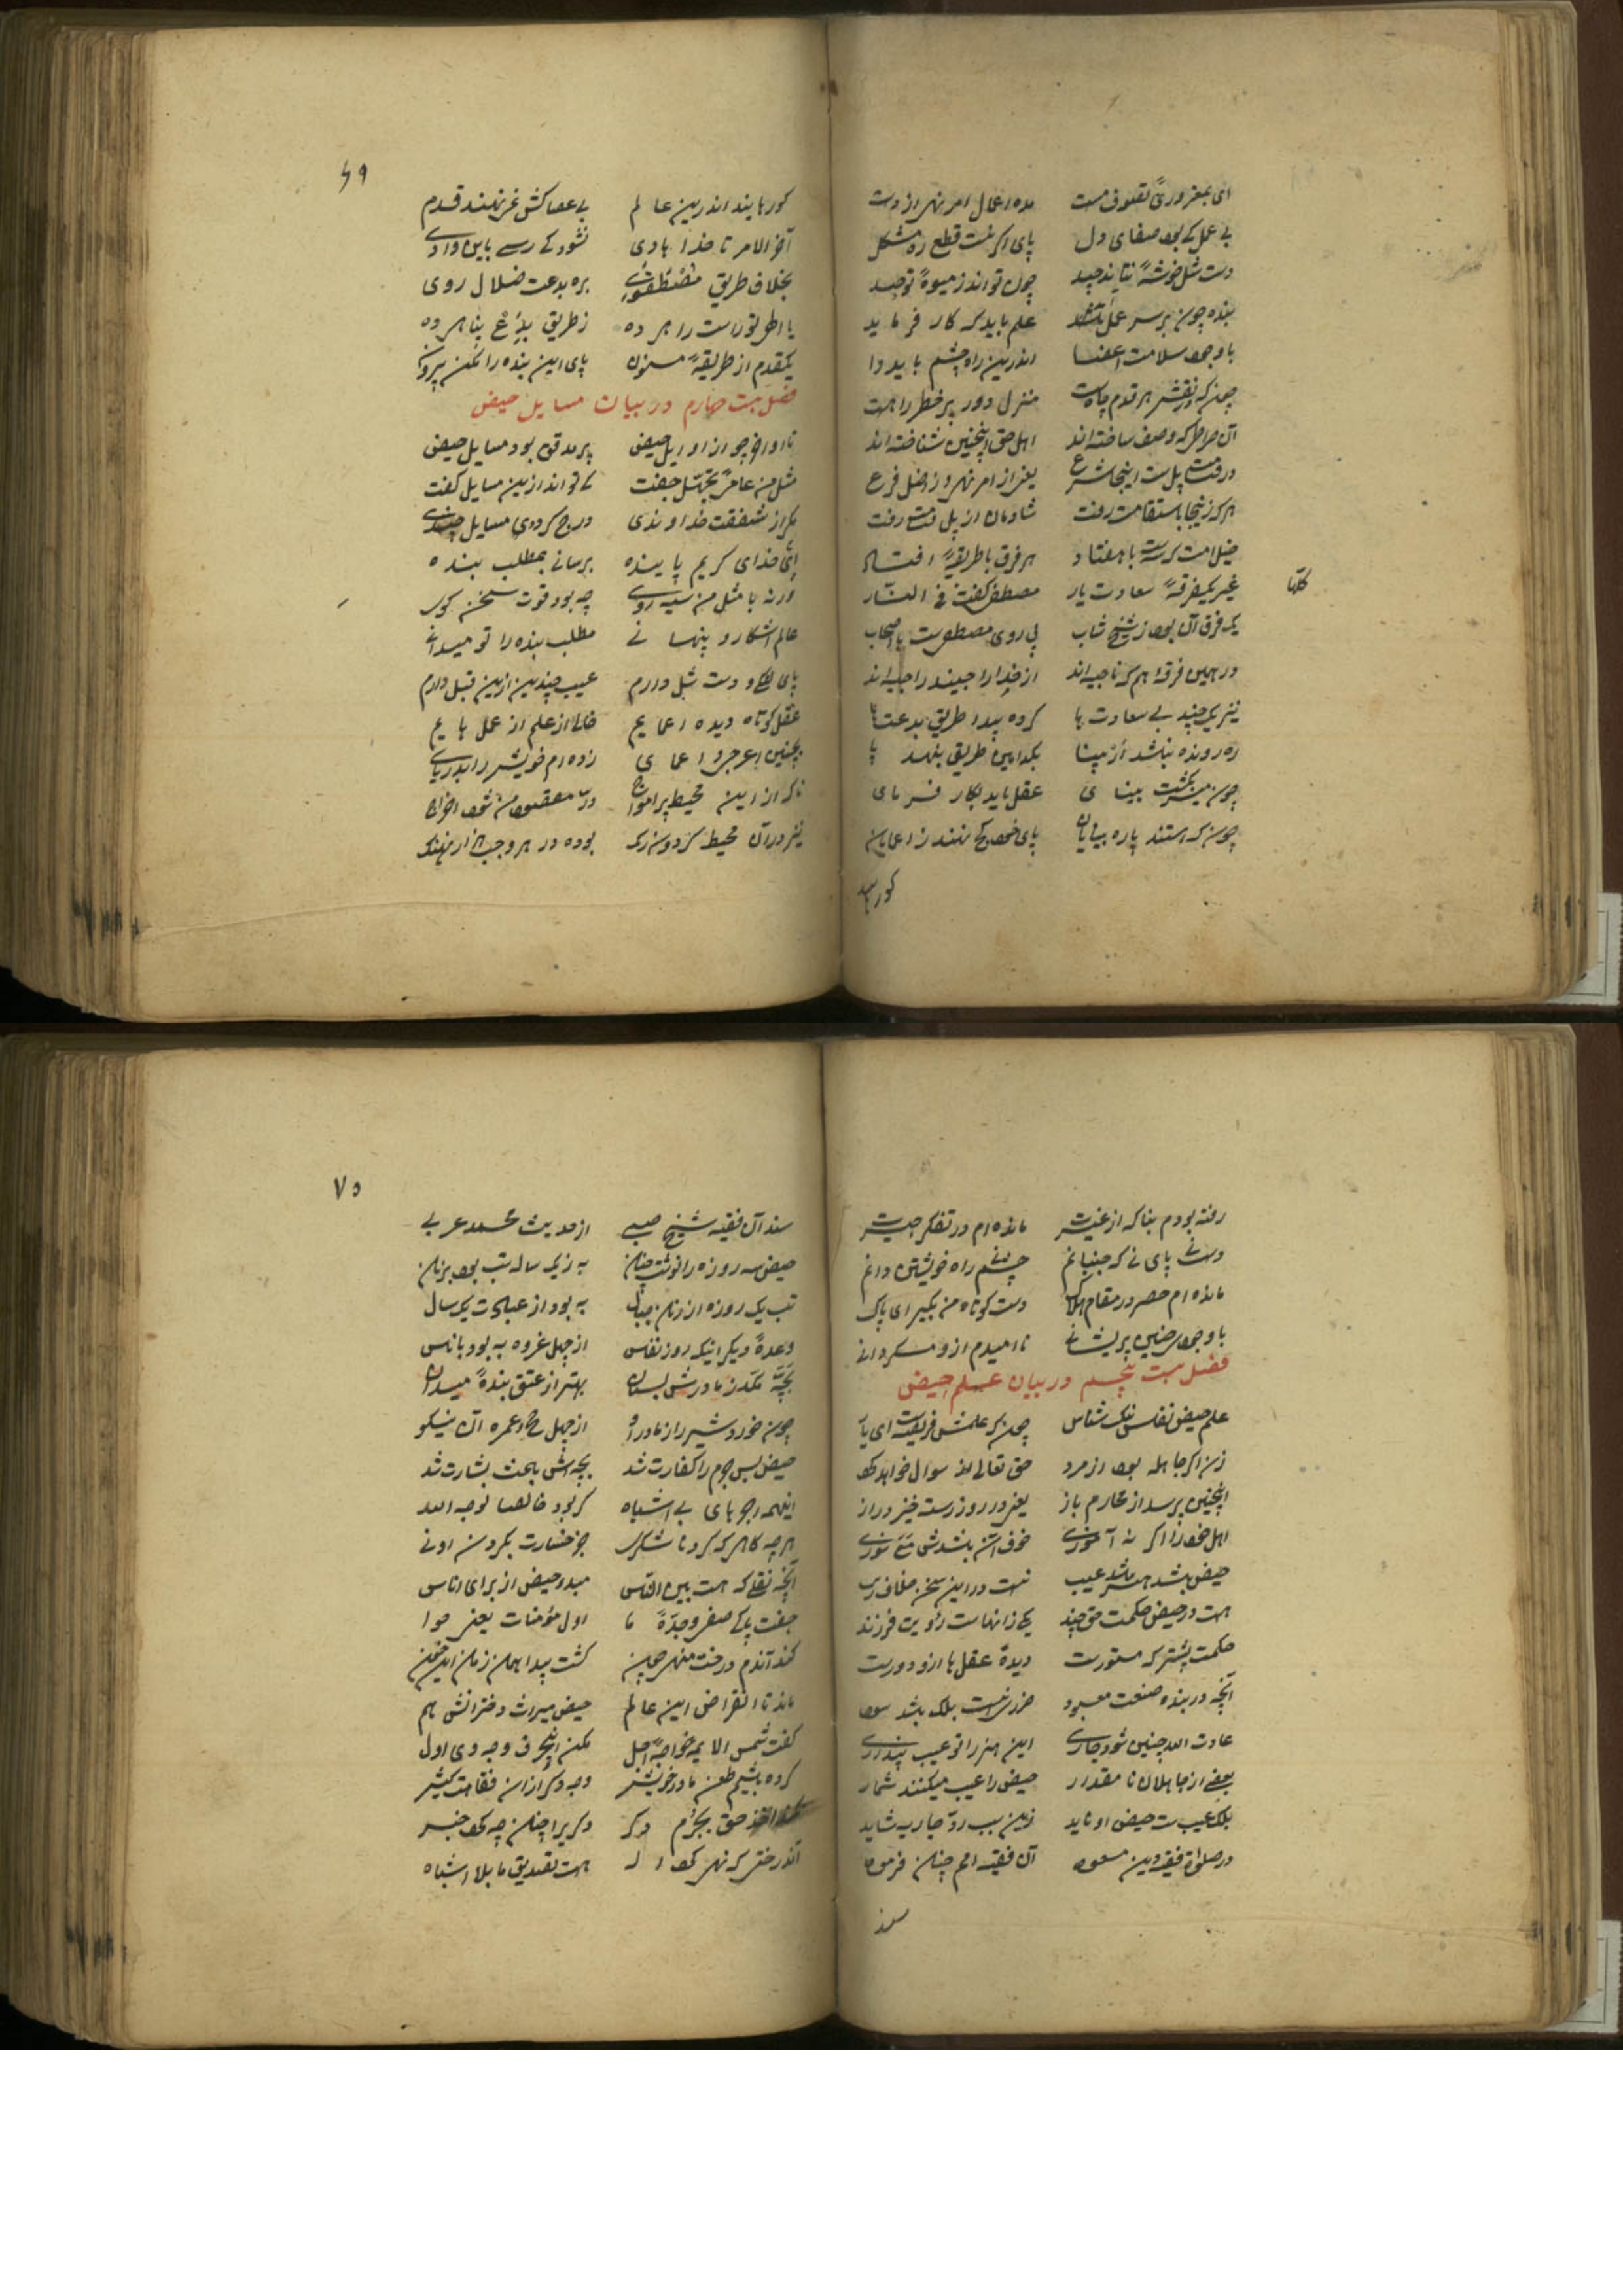 ای بمغروری تصوف مست مده اعمال امر نهی از دست
بی عمل کی بود صفای دل پای اگر نیست قطع ره مشکل
دست شل خوشهٔ نتاند چید چون تواند ز میوهٔ توحید
بنده چون بر سر عمل علم باید که کار فرماید
با وجود سلامت اعضا اندرین راه چشم باید وا
چون که در نقش هر قدم چاهست منزل دور پر خطر راهست
آن صراطی که وصف ساخته اند اهل حق اینچنین شناخته اند
در قیامت پل است اینجا شرع یعنی از امر نهی و ز اصل فرع
هر که زینجا باستقامت رفت شادمان از پل قیامت رفت
با هفتاد هر فرق با طریقهٔ افتاد
غیر یکفرقهٔ سعادت یار مصطفی گفت فی النار
کلها
یک فرق آن بود ز شیخ شاب پی روی مصطفی است با اصحاب
در همین فرقه هم که ناجیه اند از خدا
نیز یک چند بی سعادت ها کرده پیدا طریق بدعت ها
ره رونده نباشد ار بینا بکدامین طریق بنهد پا
چون میسر نگشت بینای عقل باید بکار فرمای
چون که استند پاره بینایان پای خود کج نهند ز اعمایان
کورها
۶۹
کورهایند اندرین عالم بی عصاکش غر نهند قدم
آخر الامر تا خدا هادی نشود کی رسی باین وادی
بخلاف طریق مصطفوی بره بدعت ضلال روی
یا الهی تو راست راهم ده ز طریق بدع پناهم ده
یکقدم از طریقهٔ مسنون پای این بنده را مکن بیرون
فصل بیست چهارم در بیان مسایل حیض
تا اواخر چو از اوایل حیض پر مدقق بود مسایل حیض
مثل من عامی بجهل جفت کی تواند ازین مسایل گفت
مگر از شفقت خداوندی درج کردی مسایل چندی
ای خدای کریم پاینده برسانی بمطلب بنده
ورنه با مثل من سیه روی چه بود قوت سخن گوی
عالم آشکار و پنهانی مطلب بنده را تو میدانی
پای لنگ و دست شل دارم عیب چندین ازین قبل دارم
عقل کوتاه دیده اعمایم خالی از علم از عمل هایم
بچنین اعرجی و اعمای زده ام خویش را بدریای
تا که از این محیط پر امواج در مقصود من شود اخراج
نیز در آن محیط گردون رنگ بوده در هر وجب هزار نهنگ
رفته بودم بنا که از غیرت مانده ام در تفکر حیرت
دست نی پای نی که جنبانم چشم نی راه خویشتن دانم
مانده ام حصر در مقام هلاک دست کوتاه من بگیر ای پاک
با وجود چنین پریشانی نا امیدم ازو مگردانی
فصل بیست پنجم در بیان علم حیض
علم حیض نفس نیک شناس چون که علمش فریضه است ای
زن اگر جاهله بود از مرد حق تعالی سوال خواهد کرد
اینچنین پرسد از محارم باز یعنی در روز رستخیز دراز
اهل خود را اگر نه آموزی خوف آن باشدش سوزی
حیض باشد هنر نباشد عیب نیست در این سخن خلاف ریب
هست در حیض حکمت حق چند یکی زانهاست فرزند
حکمت بیشتر که مستورست دیدهٔ عقل ما ازو دورست
آنچه در بنده صنعت معبود ضرر نیست بلک باشد سود
عادت الله چنین شود جاری این هنر را تو عیب پنداری
بعضی از جاهلان نا مقدار حیض را عیب میکنند شمار
بلک عیب است حیض او ناید زین سبب رد جاریه شاید
در صلوٰة فقیه دین مسعود آن فقیه امم چنان فرمود
سند
۷۰
سند آن فقیه شیخ صبی از حدیث محمد عربی
حیض سه روزه را نوشت چنان به ز یک ساله تب بود بزنان
تب یک روزه از زنان جبال به بود از عبادت یک سال
وعدهٔ دیگر اینکه روز نفاس از چهل غزوه به بود
بچه مکد ز مادرش پستان بهتر از عتق بندهٔ میدان
چون خورد شیر را ز مادر او از چهل حج و عمره آن نیکو
حیض بس جرم را کفارت شد بچه اش باعث بشارت شد
اینهمه اجرهای بی اشباه گر بود خالصا لوجه الله
هر چه کاهر که کرد نا شکری جز خسارت نکردن اونی
آنچه نقلی که هست بین الناس مبدء حیض از برای اناس
جفت پاک صفی و جدهٔ ما اول مؤمنات یعنی حوا
کند آندم درخت منهی چون گشت پیدا همان زمان این خون
ماند تا انقراض این عالم حیض میراث دخترانش هم
گفت شمس الایمه خواجهٔ اجل مکن اینحرف وجه وی اول
کرده باشیم طعن مادر خویش وجه دگر از آن فقاهت کیش
حق بجرم دگر دگری را چنان چه کرد خبر
آندرختی که نهی کرد اله هست تصدیق ما بلا اشباه